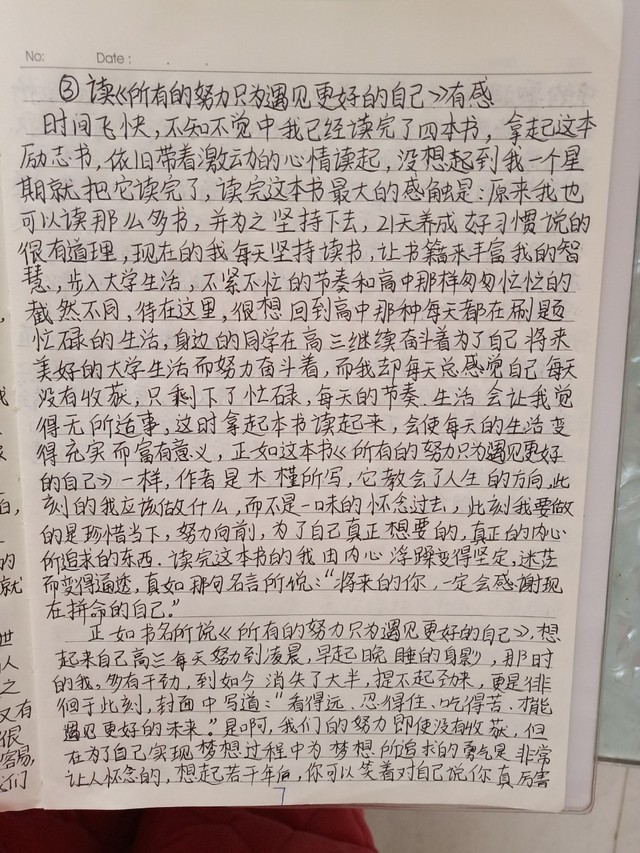 No:
Date :
③读《所有的努力只为遇见更好的自己》有感
时间飞快，不知不觉中我已经读完了四本书，拿起这本
励志书，依旧带着激动的心情读起，没想起到我一个星
期就把它读完了，读完这本书最大的感触是：原来我也
可以读那么多书，并为之坚持下去，21天养成好习惯说的
很有道理，现在的我每天坚持读书，让书籍来丰富我的智
慧，步入大学生活，不紧不忙的节奏和高中那样匆匆忙忙的
截然不同，待在这里，很想回到高中那种每天都在刷题
忙碌的生活，身边的同学在高三继续奋斗着为了自己将来
美好的大学生活而努力奋斗着，而我却每天总感觉自己每天
没有收获，只剩下了忙碌，每天的节奏、生活会让我觉
得无所适事，这时拿起本书读起来，会使每天的生活变
得充实而富有意义，正如这本书《所有的努力只为遇见更好
的自己》一样，作者是木槿所写，它教会了人生的方向，此
刻的我应该做什么，而不是一味的怀念过去，此刻我要做
的是珍惜当下，努力向前，为了自己真正想要的，真正的内心
所追求的东西．读完这本书的我由内心浮躁变得坚定，迷茫
而变得通透，真如那句名言所说：“将来的你，一定会感谢现
在拼命的自己．”
正如书名所说《所有的努力只为遇见更好的自己》，想
起来自己高三每天努力到凌晨，早起晚睡的身影，那时
的我，多有干劲，到如今消失了大半，提不起劲来，更是徘
徊于此刻，封面中写道：“看得远、忍得住、吃得苦．才能
遇见更好的未来．”是啊，我们的努力即使没有收获，但
在为了自己实现梦想过程中为梦想所追求的勇气是非常
让人怀念的，想起若干年后，你可以笑着对自己说你真厉害
7